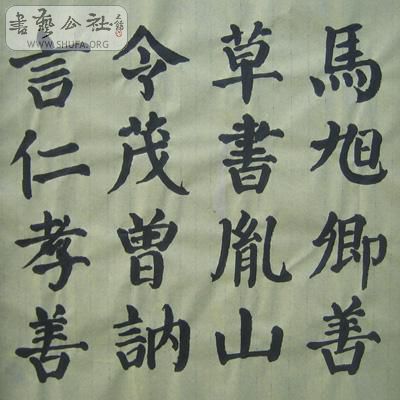 馬旭卿善
草書胤山
令茂曽訥
言仁孝善
書藝公社
WWW.SHUFA.ORG